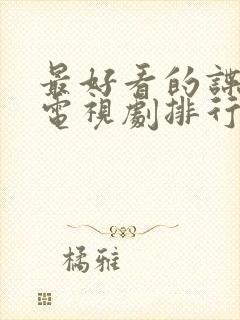 最好看的諜
電視劇排行
橘雅